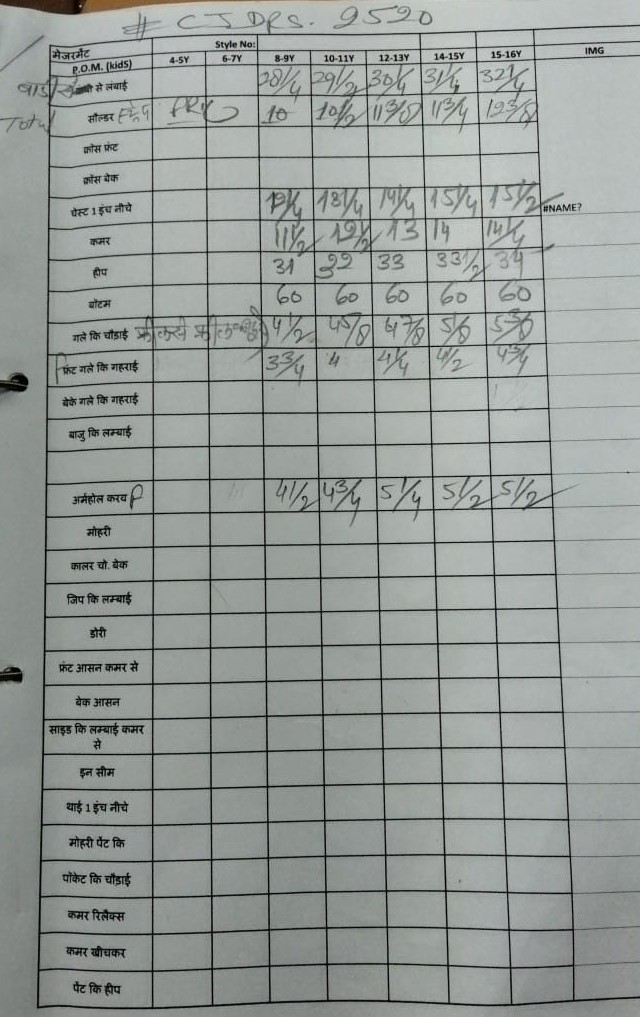 # CJ DRS. 2520
मेजरमेंट Style No:
P.O.M. (kidS) 4-5Y 6-7Y 8-9Y 10-11Y 12-13Y 14-15Y 15-16Y IMG
से लंबाई 28 1/4 29 1/2 30 1/4 31 1/4 32 1/4
Total सोल्डर 10 10 1/2 11 3/8 11 3/4 12 3/8
क्रोस फ्रंट
क्रोस बेक
चेस्ट 1 इंच नीचे 12 1/4 13 1/4 14 1/4 15 1/4 15 1/2 #NAME?
कमर 11 1/2 12 1/2 13 14 14 1/4
हीप 31 32 33 33 1/2 34
बॉटम 60 60 60 60 60
गले कि चौड़ाई 4 1/2 4 5/8 4 7/8 5 1/8 5 3/8
फ्रंट गले कि गहराई 3 3/4 4 4 1/4 4 1/2 4 3/4
बेके गले कि गहराई
बाजु कि लम्बाई
अर्महोल करव F 4 1/2 4 3/4 5 1/4 5 1/2 5 1/2
मोहरी
कालर चो. बेक
जिप कि लम्बाई
डोरी
फ्रंट आसन कमर से
बेक आसन
साइड कि लम्बाई कमर
से
इन सीम
थाई 1 इंच नीचे
मोहरी पेंट कि
पॉकेट कि चौड़ाई
कमर रिलैक्स
कमर खीचकर
पेंट कि हीप